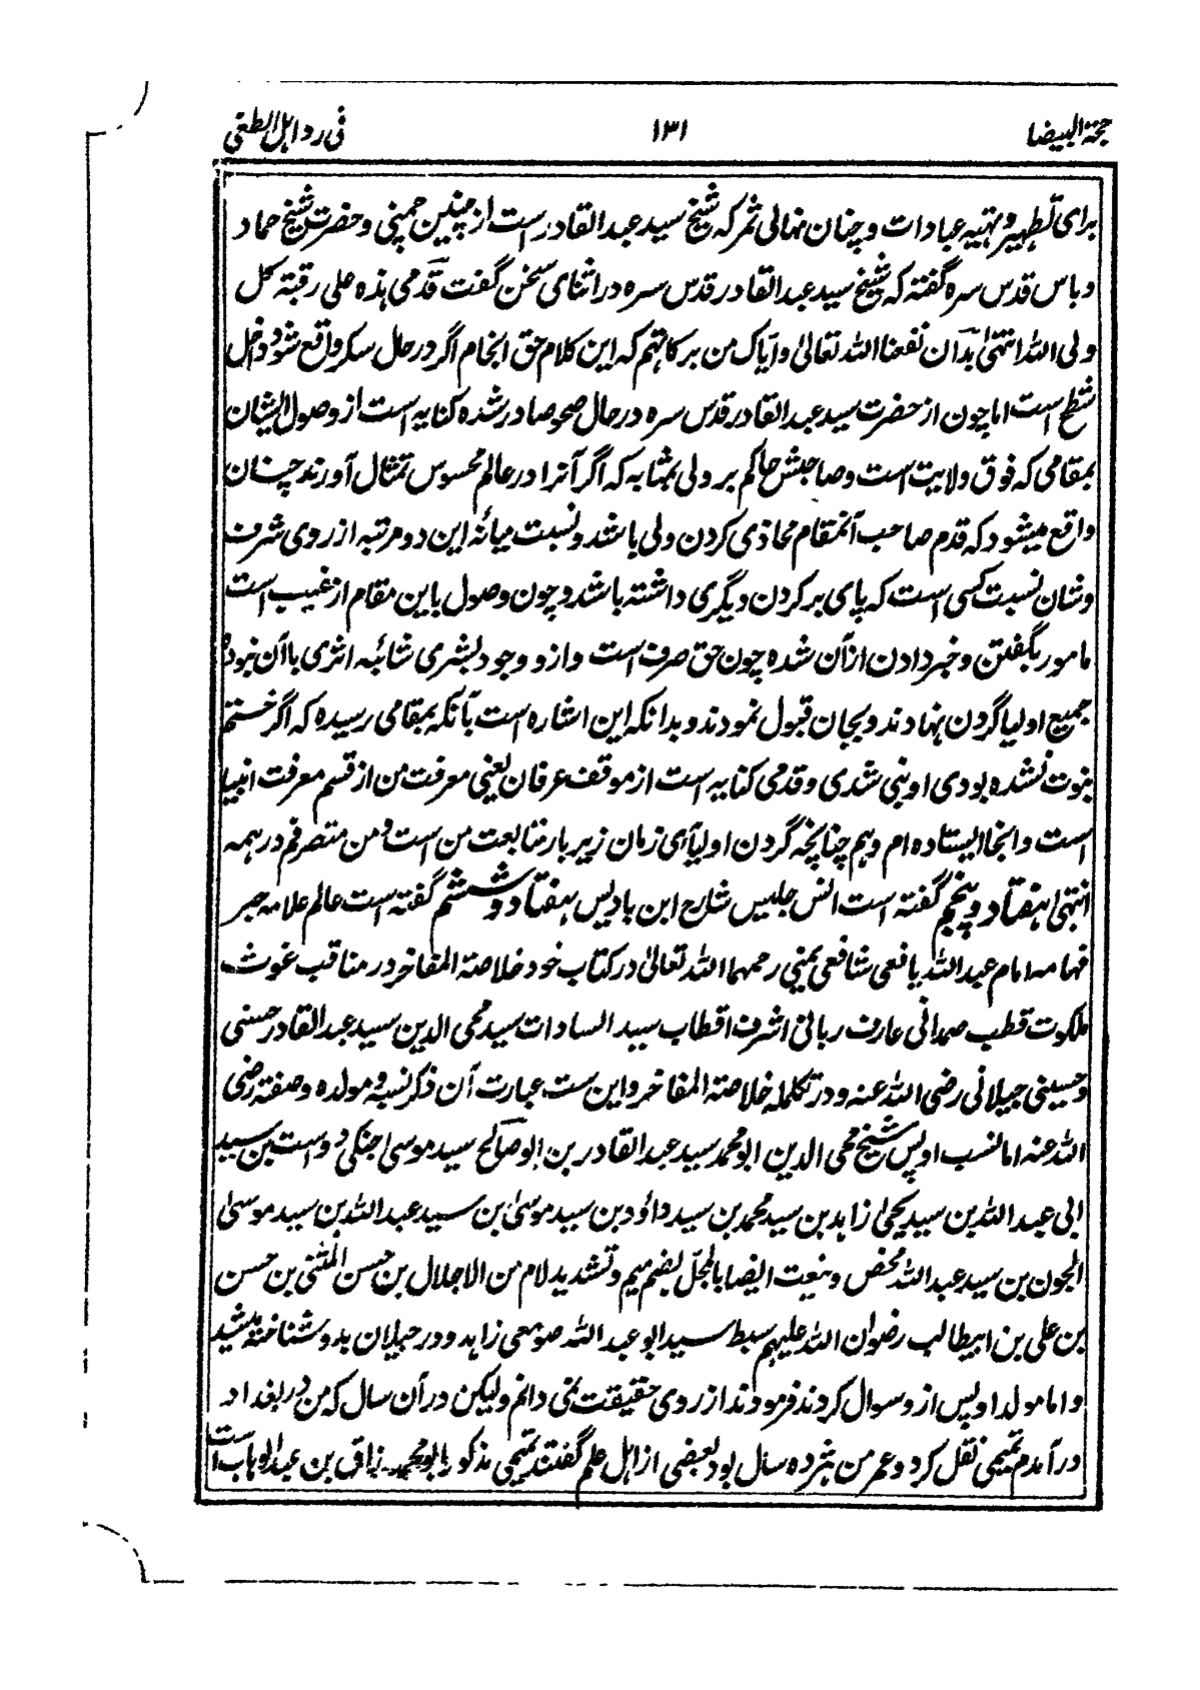 حجة البیضا ۱۳۱ فی رد اہل الطغی
برای تطہیر و تہیہ عبادات و چنان نہالی ثمر کہ شیخ سید عبد القادر است از چنین چمنی و حضرت شیخ حماد
و باس قدس سرہ گفتہ کہ شیخ سید عبد القادر قدس سرہ در اثنای سخن گفت قدمی ہذہ علی رقبۃ کل
ولی اللہ انتہیٰ بدآن نفعنا اللہ تعالیٰ و آیاک من برکاتہم کہ این کلام حق انجام اگر در حال سکر واقع شود داخل
شطح است اما چون از حضرت سید عبد القادر قدس سرہ در حال صحو صادر شدہ کنایہ است از وصول ایشان
بمقامی کہ فوق ولایت است و صاحبش حاکم بر ولی بمثابہ کہ اگر آنرا در عالم محسوس تمثال آورند چنان
واقع میشود کہ قدم صاحب آنمقام محاذی کردن ولی باشد و نسبت میانۂ این دو مرتبہ از روی شرف
و شان نسبت کسی است کہ پای بر کردن دیگری داشتہ باشد و چون وصول باین مقام از غیب است
مامور بگفتن و خبر دادن ازآن شدہ چون حق صرف است و ازو وجود بشری شائبہ اثری باآن نبودہ
جمیع اولیا گردن نہادند و بجان قبول نمودند و بدانکہ این اشارہ است بآنکہ بمقامی رسیدہ کہ اگر ختم
نبوت نشدہ بودی او نبی شدی و قدمی کنایہ است از موقف عرفان یعنی معرفت من از قسم معرفت انبیا
است و انجا ایستادہ ام و ہم چنانچہ گردن اولیآی زمان زیر بار متابعت من است و من متصرفم در ہمہ
انتہیٰ ہفتاد و پنجم گفتہ است انس جلیس شارح ابن بادیس ہفتاد و ششم گفتہ است عالم علامہ حبر
فہامہ امام عبد اللہ یافعی شافعی یمنی رحمہما اللہ تعالیٰ در کتاب خود خلاصۃ المفاخر در مناقب غوث
ملکوت قطب صمدانی عارف ربانی اشرف اقطاب سید السادات سید محی الدین سید عبد القادر حسنی
و حسینی جیلانی رضی اللہ عنہ و در تکملہ خلاصۃ المفاخر و این ست عبارت آن ذکر نسبہ و مولدہ و صفتہ رضی
اللہ عنہ اما نسب او پس شیخ محی الدین ابو محمد سید عبد القادر بن ابو صالح سید موسیٰ جنکی دوست بن سید
ابی عبد اللہ بن سید یحییٰ زاہد بن سید محمد بن سید داؤد بن سید موسیٰ بن سید عبد اللہ بن سید موسیٰ
الجون بن سید عبد اللہ محض و ینعت ایضا بالمجلّ بضم میم و تشدید لام من الاجلال بن حسن المثنی بن حسن
بن علی بن ابیطالب رضوان اللہ علیہم سبط سید ابو عبد اللہ صومعی زاہد و در جیلان بدو شناختہ میشد
و اما مولد او پس ازو سوال کردند فرمودند از روی حقیقت نمی دانم ولیکن در آن سال کہ من در بغداد
در آمدم تمیمی نقل کرد و عمر من ہژدہ سال بود بعضی از اہل علم گفتند تمیمی مذکور ابو محمد رزاق بن عبد الوہاب است